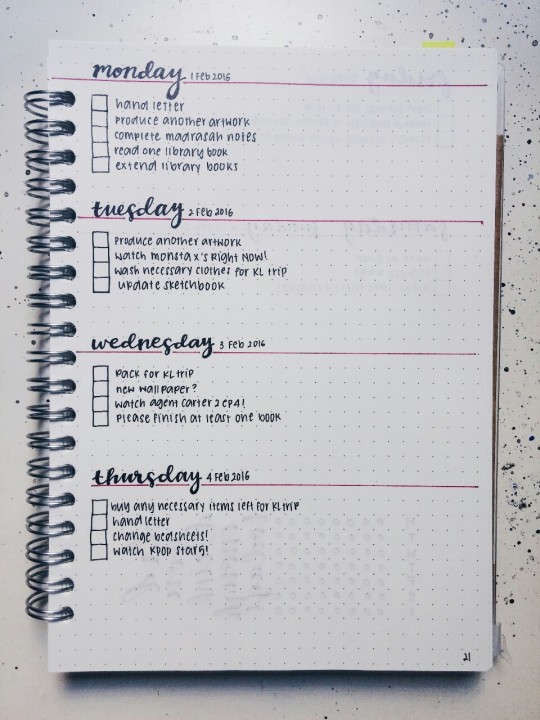 monday 1 Feb 2016
hand letter
produce another artwork
complete madrasah notes
read one library book
extend library books
tuesday 2 Feb 2016
produce another artwork
watch monsta x's Right Now!
wash necessary clothes for KL trip
update sketchbook
wednesday 3 Feb 2016
pack for KL trip
new wallpaper?
watch agent carter 2 ep4!
please finish at least one book
thursday 4 Feb 2016
buy any necessary items left for KL trip
hand letter
change bedsheets!
watch kpop star5!
21